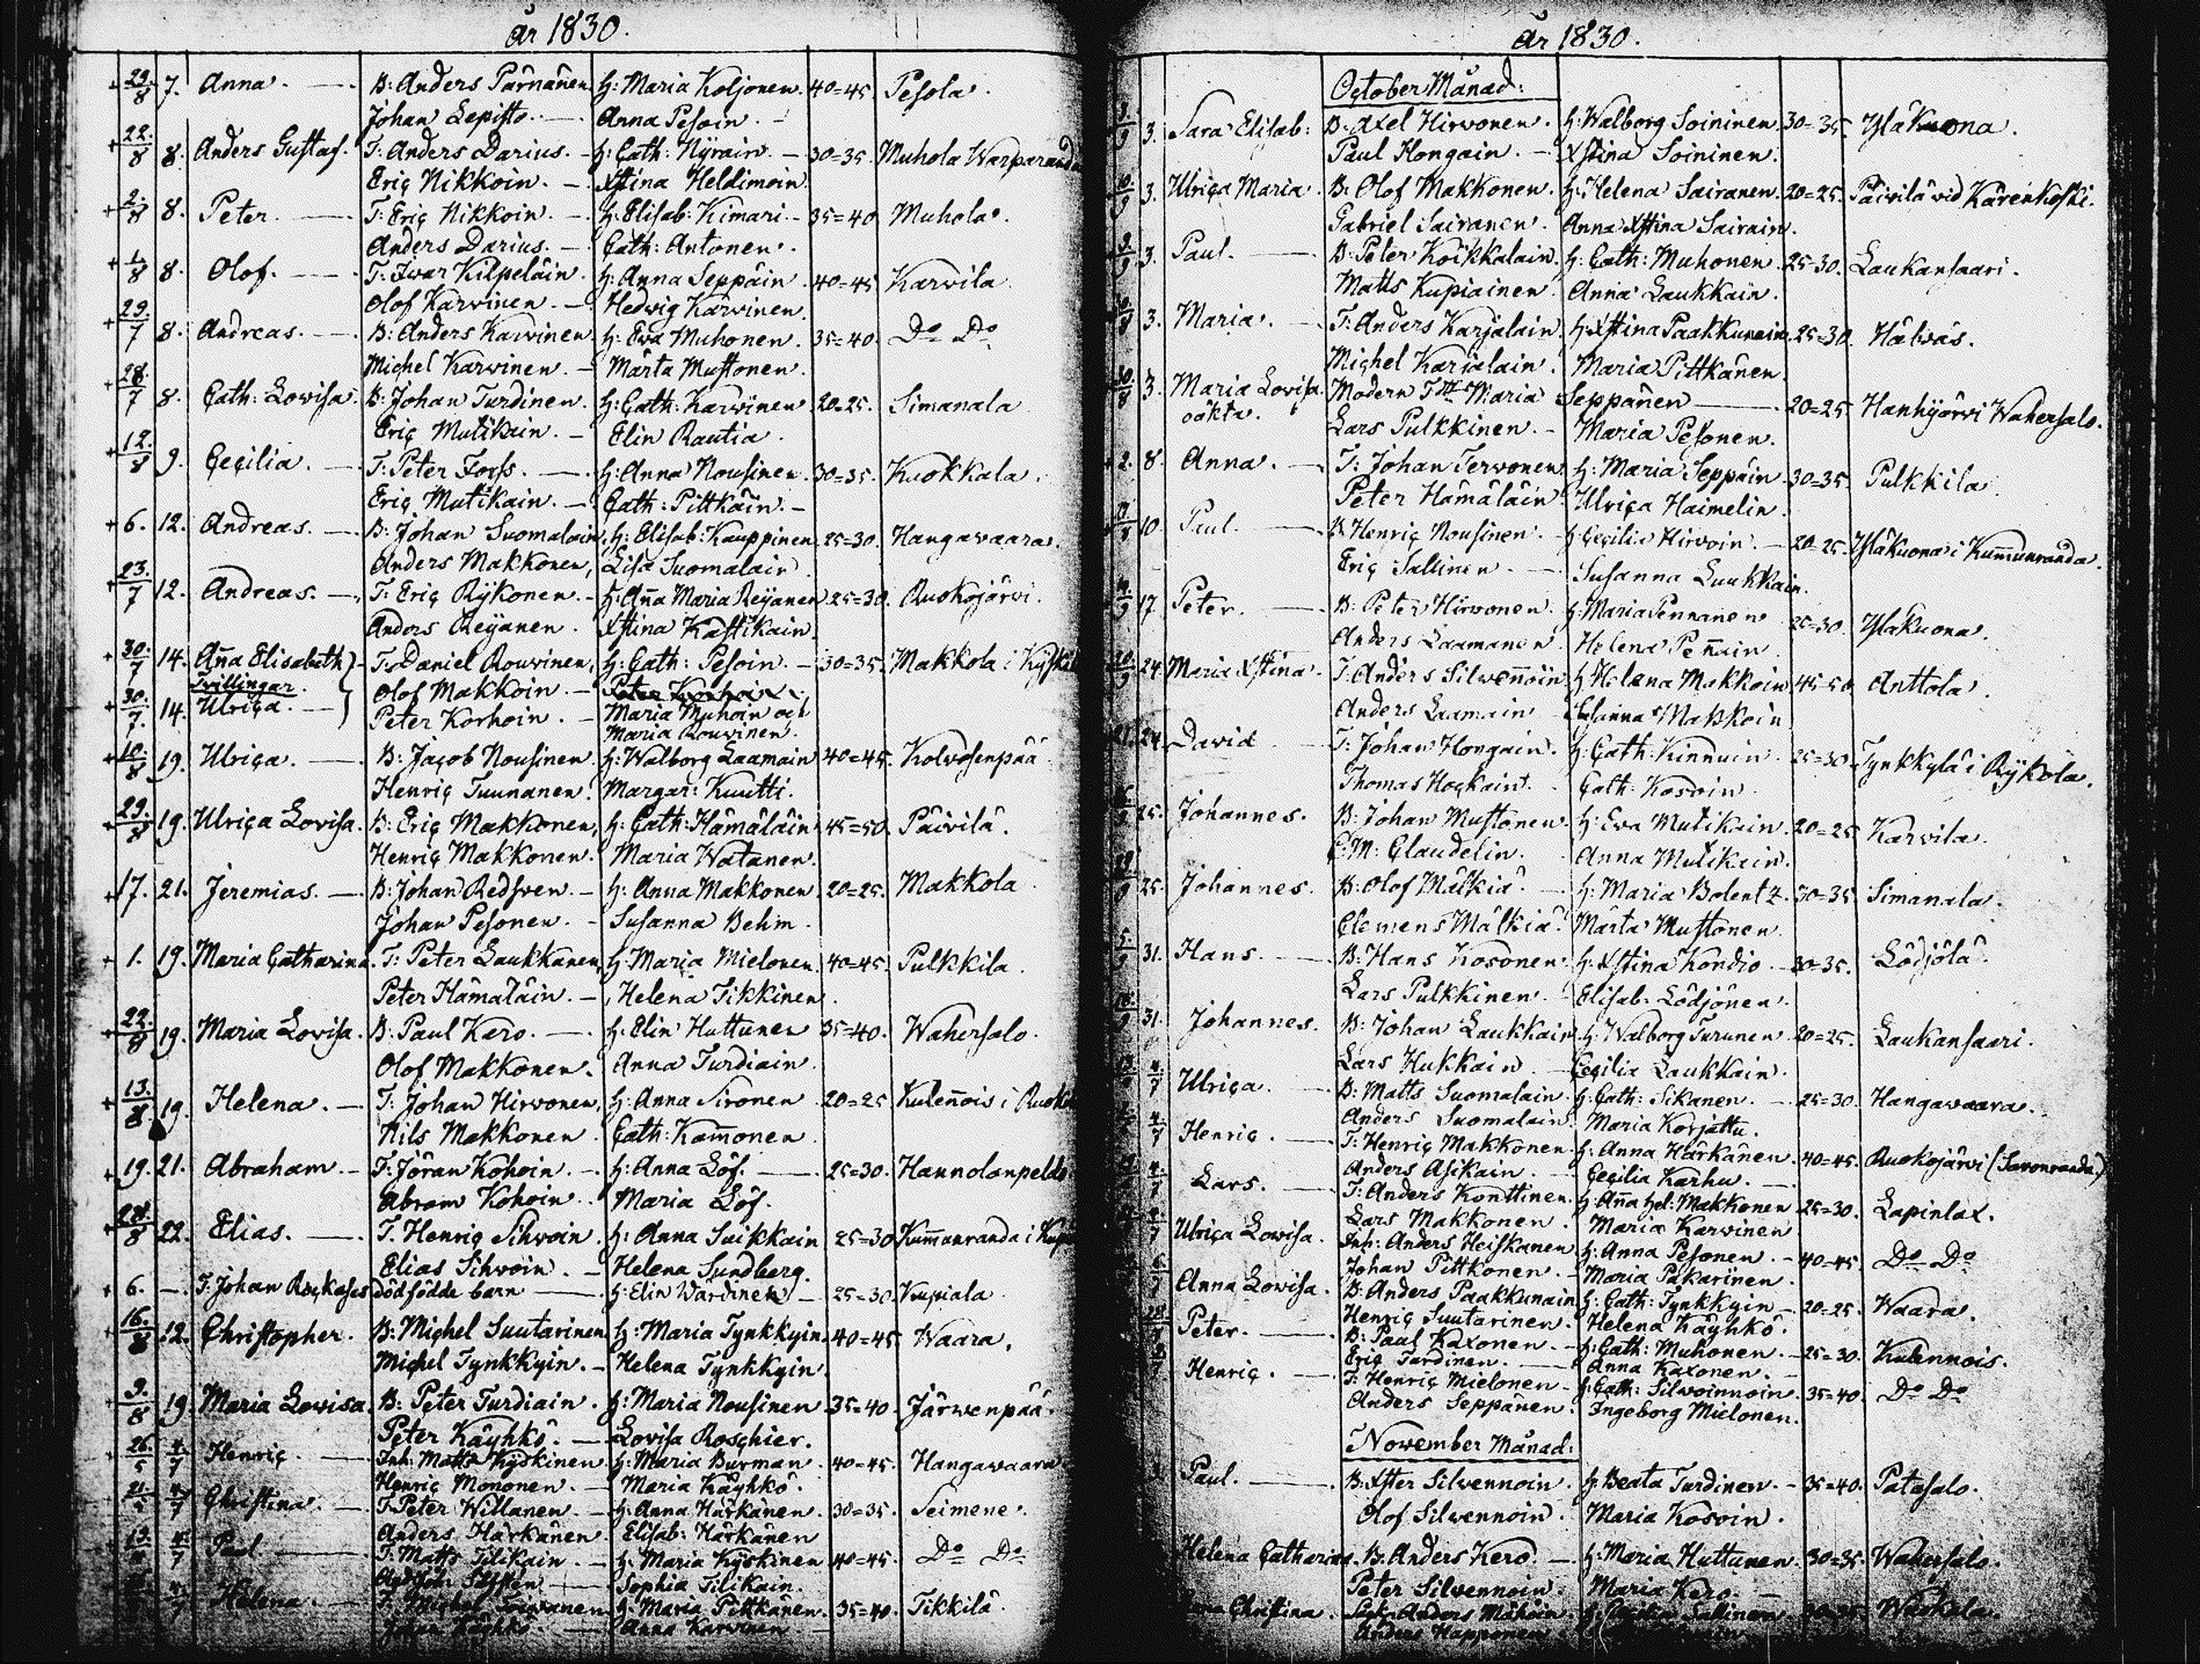 år 1830.
29/8 7. Anna. B: Anders Pärnänen H: Maria Koljonen. 40=45. Pesola.
Johan Lepistö. Anna Pesoin.
22/8 8. Anders Gustaf. T: Anders Darius. H: Cath: Nyrain. 30=35. Muhola Warparanda
Eric Nikkoin. Xstina Heldimoin
2/8 8. Peter. T: Eric Nikkoin. H: Elisab: Kimari. 35=40. Muhola.
Anders Darius. Cath: Antonen.
1/8 8. Olof. T: Iwar Kilpeläin. H: Anna Seppäin. 40=45 Karvila
Olof Karvinen. Hedwig Karvinen.
29/7 8. Andreas. B: Anders Karvinen. H: Eva Muhonen. 35=40. Do Do
Michel Karvinen. Märta Mustonen.
28/7 8. Cath: Lovisa. B: Johan Turdinen. H: Cath: Karvinen. 20=25. Simanala
Eric Mutikain. Elin Rautia.
12/8 9. Cecilia. T: Peter Forss. H: Anna Nousinen. 30=35. Kuokkala.
Eric Mutikain. Cath: Pittkäin.
6. 12. Andreas. B: Johan Suomalain, H: Elisab: Kauppinen 25=30. Hangavaara.
Anders Makkonen, Lisa Suomalain
23/7 12. Andreas. T: Eric Rykonen. H: Aña Maria Reijanen 25=30. Ruokojärvi.
Anders Reijanen. Xstina Kastikain.
30/7 14. Aña Elisabeth T: Daniel Rouvinen, H: Cath: Pesoin. 30=35. Makkola i
Tvillingar. Olof Makkoin.
30/7 14. Ulrica. Peter Korhoin. Maria Muhoin och
Maria Rouvinen.
10/8 19. Ulrica. B: Jacob Nousinen. H: Walborg Laamain 40=45. Kolvosenpää
Henric Tuunanen. Margar: Kuutti.
29/8 19. Ulrica Lovisa. B: Eric Makkonen, H: Cath: Hämäläin. 45=50. Päivilä.
Henric Makkonen. Maria Watanen.
17. 21. Jeremias. B: Johan Redsven. H: Anna Makkonen. 20=25. Makkola
Johan Pesonen. Susanna Behm.
1. 19. Maria Catharina. T: Peter Laukkanen, H: Maria Mielonen. 40=45. Pulkkila.
Peter Hämäläin. Helena Tikkinen.
22/8 19. Maria Lovisa. B: Paul Kero. H: Elin Huttunen 35=40. Wahersalo.
Olof Makkonen. Anna Turdiain.
13/8 19. Helena. T: Johan Hirvonen, H: Anna Sironen 20=25 Kuleñois i
Nils Makkonen Cath: Kamonen
19. 21. Abraham. T: Jöran Kohoin. H: Anna Löf. 25=30. Hannolanpelds
Abram Kohoin. Maria Löf.
22. Elias. T. Henric Sihvoin. H: Anna Suikkain 25=30 Kummunranda i
Elias Sihvoin. Helena Sundberg.
6. T: Johan dödfödde barn H: Elin Wärdinen 25=30. Kupiala
16/8 12. Christopher. B: Michel Suutarinen H: Maria Tynkkyin. 40=45. Waara.
Michel Tynkkyin. Helena Tynkkyin.
9/8 19. Maria Lovisa. B: Peter Turdiain. H: Maria Nousinen 35=40. Järvenpää.
Peter Käyhkö. Lovisa Roschier.
26/5 4/7 Henric. Inh: Matts Kyskinen H: Maria Burman. 40=45. Hangavaara.
Henric Mononen. Maria Käyhkö.
4/7 Christina. T: Peter Willanen H: Anna Härkänen. 30=35. Seimene.
Anders Härkänen. Elisab: Härkänen
4/7 Paul. T: Matts Tilikain. H: Maria Kyskinen 40=45. Do Do
Sophia Tilikain.
Helena. T: Michel H: Maria Pittkänen. 35=40. Tikkilä
Johan Käyhkö. Anna Karvinen
år 1830.
October Månad:
3/9 3. Sara Elisab: B: Axel Hirvonen. H: Walborg Soininen. 30=35. Yläkuona.
Paul Hongain. Xstina Soininen.
10/9 3. Ulrica Maria. B: Olof Makkonen. H: Helena Sairanen. 20=25. Päivilä vid Kärenkoski.
Gabriel Sairanen. Anna Xstina Sairain.
9/9 3. Paul. B: Peter Koikkalain. H: Cath: Muhonen. 25=30. Laukansaari.
Matts Kupiainen. Anna Laukkain.
3. Maria. T: Anders Karjalain. H: Xstina Paakkunain 25=30. Hälväs.
Michel Karjalain. Maria Pittkänen.
30/8 3. Maria Lovisa Modern Maria Seppänen 20=25 Hanhijärvi Wahersalo.
oäkta. Lars Pulkkinen. Maria Pesonen.
2. 8. Anna. T: Johan Tervonen. H: Maria Seppäin. 30=35. Pulkkila
Peter Hämäläin. Ulrica Haimelin.
10. Paul. B: Henric Nousinen. H: Cecilia Hirvoin. 20=25. Yläkuona i Kummunranda.
Eric Sallinen Susanna Luukkain.
17. Peter. B: Peter Hirvonen. H: Maria Pennanen 25=30. Yläkuona.
Anders Laamanen Helena Peñain
20/9 24. Maria Xstina. T: Anders Silvennoin. H: Helena Makkoin 45=50. Anttola.
Anders Laamain Susanna Makkoin
24. David T: Johan Hongain. H: Cath: Kinnuin. 25=30. Tynkkylä i Rykola.
Thomas Hockain. Cath: Kosoin.
25. Johannes. B: Johan Mustonen. H: Eva Mutikain. 20=25 Karvila.
C: M: Claudelin. Anna Mutikain.
25. Johannes. B: Olof Mälkiä. H: Maria Bolentz. 30=35. Simanala.
Clemens Mälkiä. Märta Mustonen.
5/9 31. Hans. B: Hans Kosonen. H: Xstina Kondio 30=35. Lödjölä.
Lars Pulkkinen. Elisab: Lödjönen.
31. Johannes. B: Johan Laukkain H: Walborg Turunen 20=25. Laukansaari.
Lars Hukkain. Cecilia Laukkain.
4/7 Ulrica. B: Matts Suomalain. H: Cath: Sikanen. 25=30. Hangavaara.
Anders Suomalain. Maria Korjattu.
4/7 Henric. T: Henric Makkonen. H: Anna Härkänen. 40=45. Ruokojärvi (Savonranda.)
Anders Asikain. Cecilia Karhu.
4/7 Lars. T: Anders Konttinen. H: Aña Hel: Makkonen 25=30. Lapinlax.
Lars Makkonen. Maria Karvinen
Ulrica Lovisa. Inh: Anders Heiskanen H: Anna Pesonen. 40=45 Do Do
Johan Pittkonen. Maria Pakarinen.
Anna Lovisa. B: Anders Paakkunain H: Cath: Tynkkyin 20=25. Waara.
Henric Suutarinen. Helena Käyhkö.
Peter. B: Paul Kaxonen. H: Cath: Muhonen. 25=30. Kulennois.
Eric Turdinen. Anna Kaxonen.
Henric. T: Henric Mielonen H: Cath: Silvoinnoin. 35=40. Do Do
Anders Seppänen. Ingeborg Mielonen.
November Månad:
Paul. B: Xster Silvennoin H: Beata Turdinen. 35=40. Patasalo.
Olof Silvennoin. Maria Kosoin.
Helena Catharina. B: Anders Kero. H: Maria Huttunen. 30=35. Wahersalo.
Peter Silvennoin. Maria Kero.
Christina. Anders Muhoin H: Cecilia Sallinen Waskala.
Anders Happonen